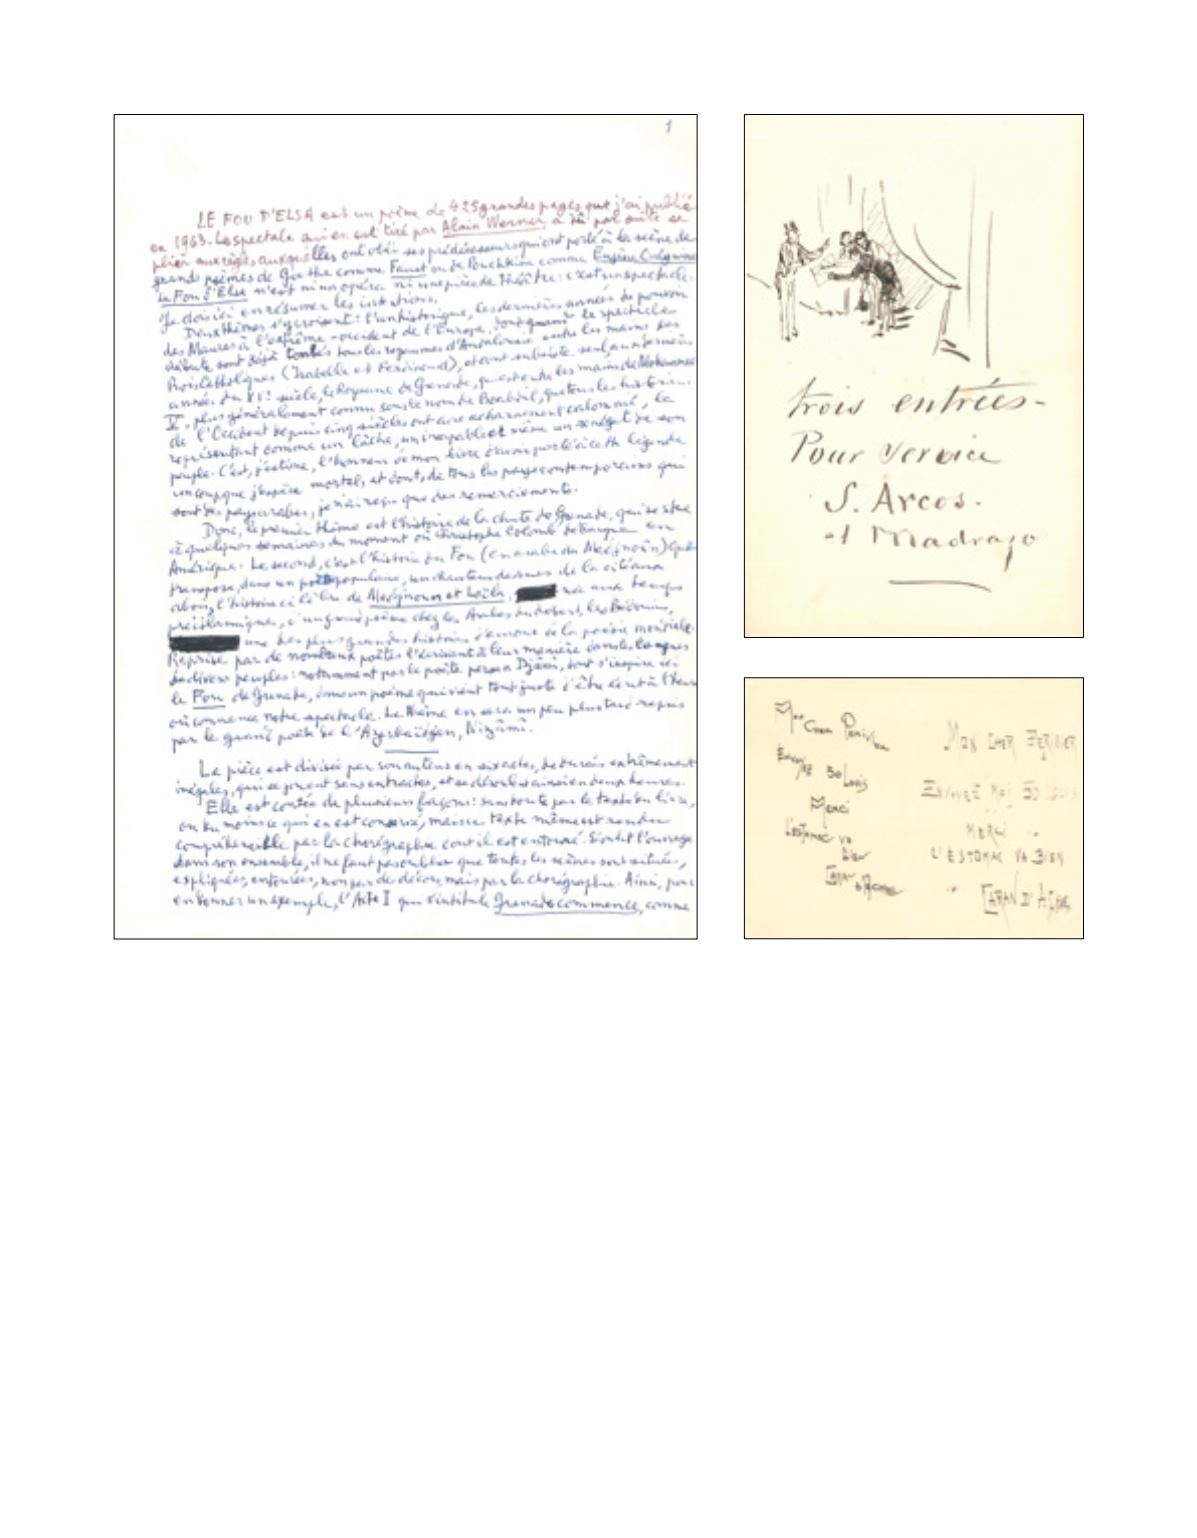 1
LE FOU D'ELSA est un poème de 425 grandes pages que j'ai publié
en 1963. Le spectacle qui en est tiré par Alain Werner a dû par suite se
plier aux règles auxquelles ont obéi ses prédécesseurs qui ont porté à la scène de
grands poèmes de Goethe comme Faust ou de Pouchkine comme Eugène
Le Fou d'Elsa n'est ni un opéra ni une pièce de théâtre: c'est un spectacle.
Je dois ici en résumer les intentions.
Deux thèmes s'y croisent: l'un historique, les dernières années du pouvoir
des Maures à l'extrême-occident de l'Europe, dont quand le spectacle
débute sont déjà tombés tous les royaumes d'Andalousie entre les mains des
Rois Catholiques (Isabelle et Ferdinand), et dont subsiste seul, aux dernières
années du XVe siècle, le Royaume de Grenade, qui est entre les mains de
plus généralement connu sous le nom de Boabdil, que tous les historiens
de l'Occident depuis cinq siècles ont avec acharnement calomnié, le
représentant comme un lâche, un incapable et même un renégat de son
peuple. C'est, j'estime, l'honneur de mon livre d'avoir porté à cette légende
un coup que j'espère mortel, et dont, de tous les pays contemporains qui
sont des pays arabes, je n'ai reçu que des remerciements.
Donc, le premier thème est l'histoire de la chute de Grenade, qui se situe
à quelques semaines du moment où Christophe Colomb débarque en
Amérique. Le second, c'est l'histoire du Fou (en arabe du Medjnoûn) qui
transpose, dans un poète populaire, un chanteur des rues de la cité aux
abois, l'histoire célèbre de Medjnoun et Leïla, née aux temps
préislamiques, d'un grand poème chez les Arabes du désert, les Bédouins,
une des plus grandes histoires d'amour de la poésie mondiale.
Reprise par de nombreux poètes l'écrivant à leur manière dans les langues
de divers peuples: notamment par le poète persan Djâmî, dont s'inspire ici
le Fou de Grenade, dans un poème qui vient tout juste d'être écrit à l'heure
où commence notre spectacle. Le thème en sera un peu plus tard repris
par le grand poète de l'Azerbaïdjan, Nizâmî.
La pièce est divisée par son auteur en six actes, de durées extrêmement
inégales, qui se jouent sans entractes, et se déroulent ainsi en deux heures.
Elle est contée de plusieurs façons: sans doute par le texte du livre,
ou du moins ce qui en est conservé, mais ce texte même est rendu
compréhensible par la chorégraphie dont il est entouré. S'ouvrit l'ouvrage
dans son ensemble, il ne faut pas oublier que toutes les scènes sont situées,
expliquées, entourées, non par de décor, mais par la chorégraphie. Ainsi, pour
en donner un exemple, l'Acte I qui s'intitule Grenade commence, comme
trois entrées-
Pour service
S. Arcos.
et Madrazo
Mon Cher
Envoyez 50 Louis
Merci
L'estomac va
bien
Caran d'Ache
MON CHER
ENVOYEZ MOI 50 LOUIS
MERCI
L'ESTOMAC VA BIEN
CARAN D'ACHE